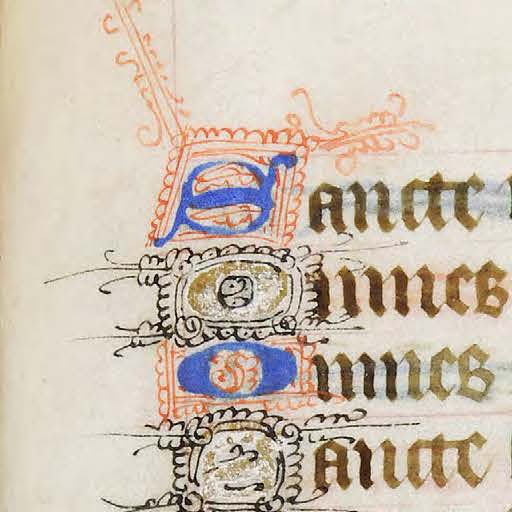 Sancte
Omnes
Omnes
Sancte